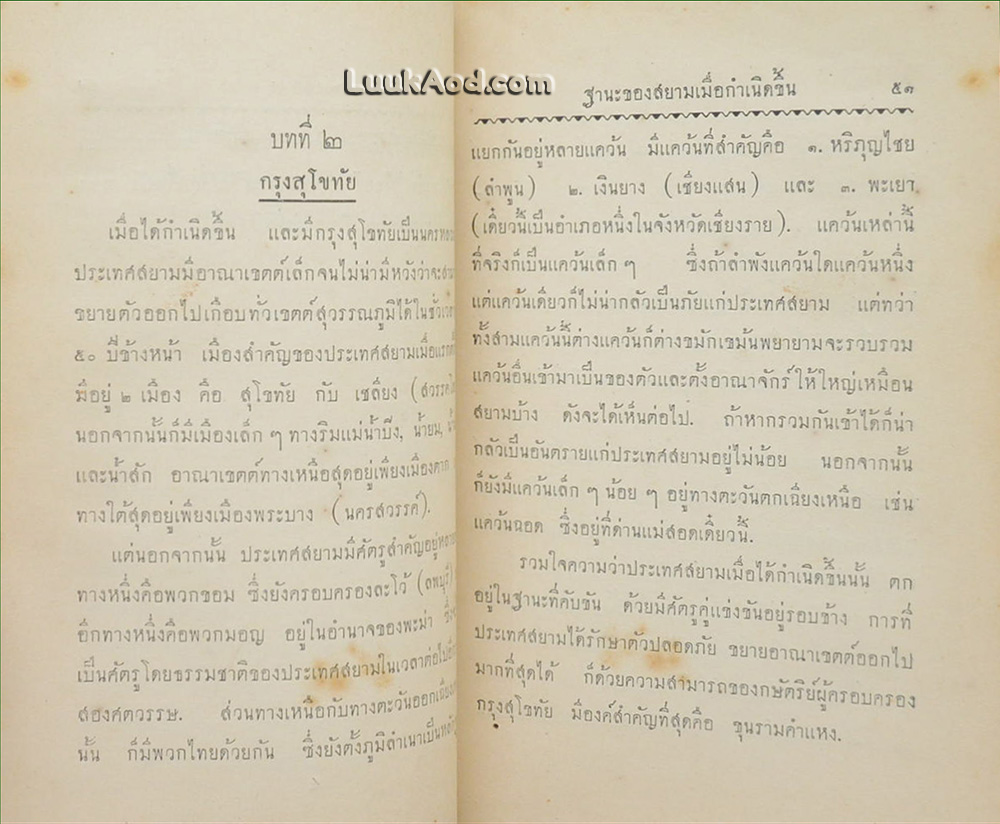 LuukAod.com
บทที่ ๒
กรุงสุโขทัย
เมื่อได้กำเนิดขึ้น และมีกรุงสุโขทัยเป็นนคร
ประเทศสยามมีอาณาเขตต์เล็กจนไม่น่ามีหวังว่าจะ
ขยายตัวออกไปเกือบทั่วเขตต์สุวรรณภูมิได้ใน
๕๐ ปีข้างหน้า เมืองสำคัญของประเทศสยามเมื่อ
มีอยู่ ๒ เมือง คือ สุโขทัย กับ เชลียง (
นอกจากนั้นก็มีเมืองเล็ก ๆ ทางริมแม่น้ำปิง, น้ำยม,
และน้ำสัก อาณาเขตต์ทางเหนือสุดอยู่เพียงเมืองตาก
ทางใต้สุดอยู่เพียงเมืองพระบาง (นครสวรรค์).
แต่นอกจากนั้น ประเทศสยามมีศัตรูสำคัญอยู่
ทางหนึ่งคือพวกขอม ซึ่งยังครอบครองละโว้ (ลพบุรี)
อีกทางหนึ่งคือพวกมอญ อยู่ในอำนาจของพะม่า
เป็นศัตรูโดยธรรมชาติของประเทศสยามในเวลาต่อไป
สองศตวรรษ. ส่วนทางเหนือกับทางตะวันออก
นั้น ก็มีพวกไทยด้วยกัน ซึ่งยังตั้งภูมิลำเนาเป็น
ฐานะของสยามเมื่อกำเนิดขึ้น ๕๑
แยกกันอยู่หลายแคว้น มีแคว้นที่สำคัญคือ ๑. หริภุญไชย
(ลำพูน) ๒. เงินยาง (เชียงแสน) และ ๓. พะเยา
(เดี๋ยวนี้เป็นอำเภอหนึ่งในจังหวัดเชียงราย). แคว้นเหล่านี้
ที่จริงก็เป็นแคว้นเล็ก ๆ ซึ่งถ้าลำพังแคว้นใดแคว้นหนึ่ง
แต่แคว้นเดียวก็ไม่น่ากลัวเป็นภัยแก่ประเทศสยาม แต่ทว่า
ทั้งสามแคว้นนี้ต่างแคว้นก็ต่างขมักเขม้นพยายามจะรวบรวม
แคว้นอื่นเข้ามาเป็นของตัวและตั้งอาณาจักร์ให้ใหญ่เหมือน
สยามบ้าง ดังจะได้เห็นต่อไป. ถ้าหากรวมกันเข้าได้ก็น่า
กลัวเป็นอันตรายแก่ประเทศสยามอยู่ไม่น้อย นอกจากนั้น
ก็ยังมีแคว้นเล็ก ๆ น้อย ๆ อยู่ทางตะวันตกเฉียงเหนือ เช่น
แคว้นฉอด ซึ่งอยู่ที่ด่านแม่สอดเดี๋ยวนี้.
รวมใจความว่าประเทศสยามเมื่อได้กำเนิดขึ้นนั้น ตก
อยู่ในฐานะที่คับขัน ด้วยมีศัตรูคู่แข่งขันอยู่รอบข้าง การที่
ประเทศสยามได้รักษาตัวปลอดภัย ขยายอาณาเขตต์ออกไป
มากที่สุดได้ ก็ด้วยความสามารถของกษัตริย์ผู้ครอบครอง
กรุงสุโขทัย มีองค์สำคัญที่สุดคือ ขุนรามคำแหง.